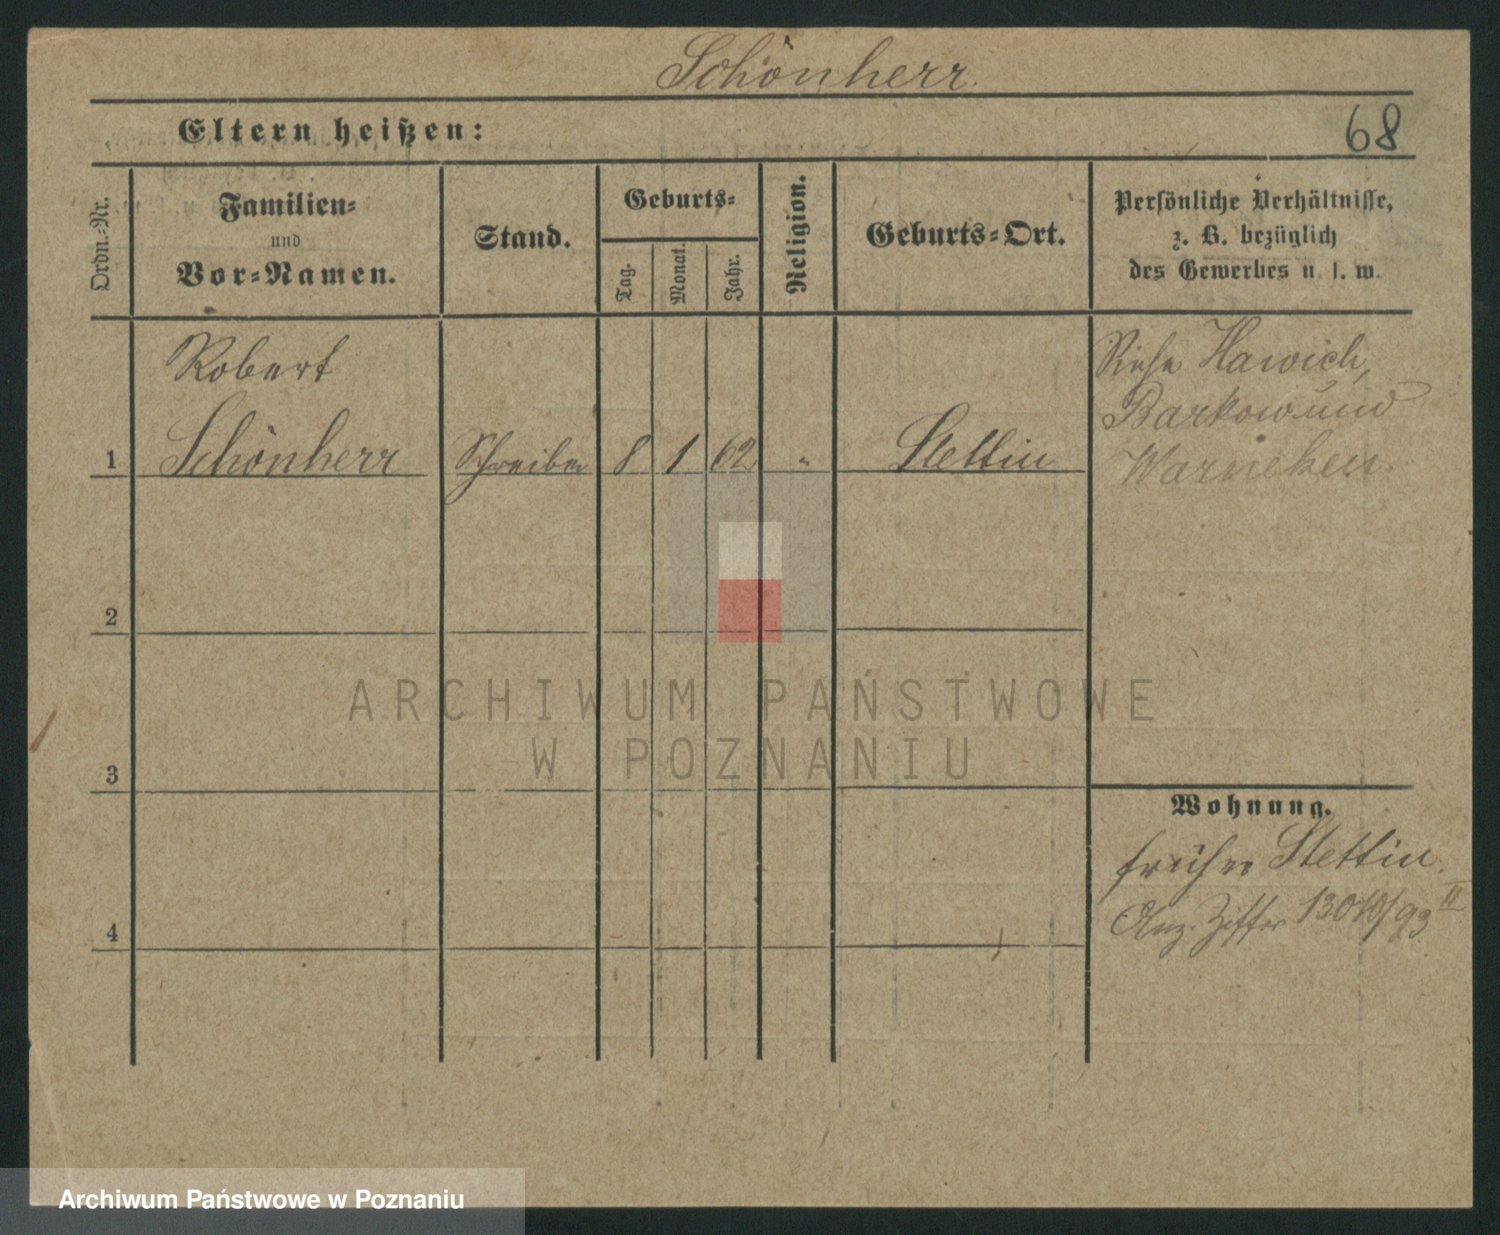 Schönherr.
Eltern heißen:
68
Ordn.-Nr.
Familien-
und
Vor-Namen.
Stand.
Geburts-
Tag.
Monat.
Jahr.
Religion.
Geburts-Ort.
Persönliche Verhältnisse,
z. B. bezüglich
des Gewerbes u. s. w.
Robert
1 Schönherr Schreiber 8 1 62 " Stettin
Siehe Hawich,
Barkow und
Warneken.
2
3
4
Wohnung.
früher Stettin.
Anz. Ziffer 13010/93 II
ARCHIWUM PAŃSTWOWE
W POZNANIU
Archiwum Państwowe w Poznaniu